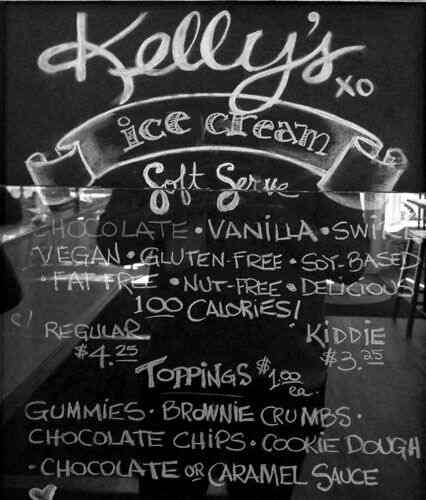 Kelly's
xo
ice cream
Soft Serve
CHOCOLATE • VANILLA • SWIR
VEGAN • GLUTEN-FREE • SOY-BASED
• FAT FREE • NUT-FREE • DELICIOUS
100 CALORIES!
REGULAR KIDDIE
$4.25 $3.25
TOPPINGS $1.00 ea.
GUMMIES • BROWNIE CRUMBS •
CHOCOLATE CHIPS • COOKIE DOUGH
• CHOCOLATE OR CARAMEL SAUCE